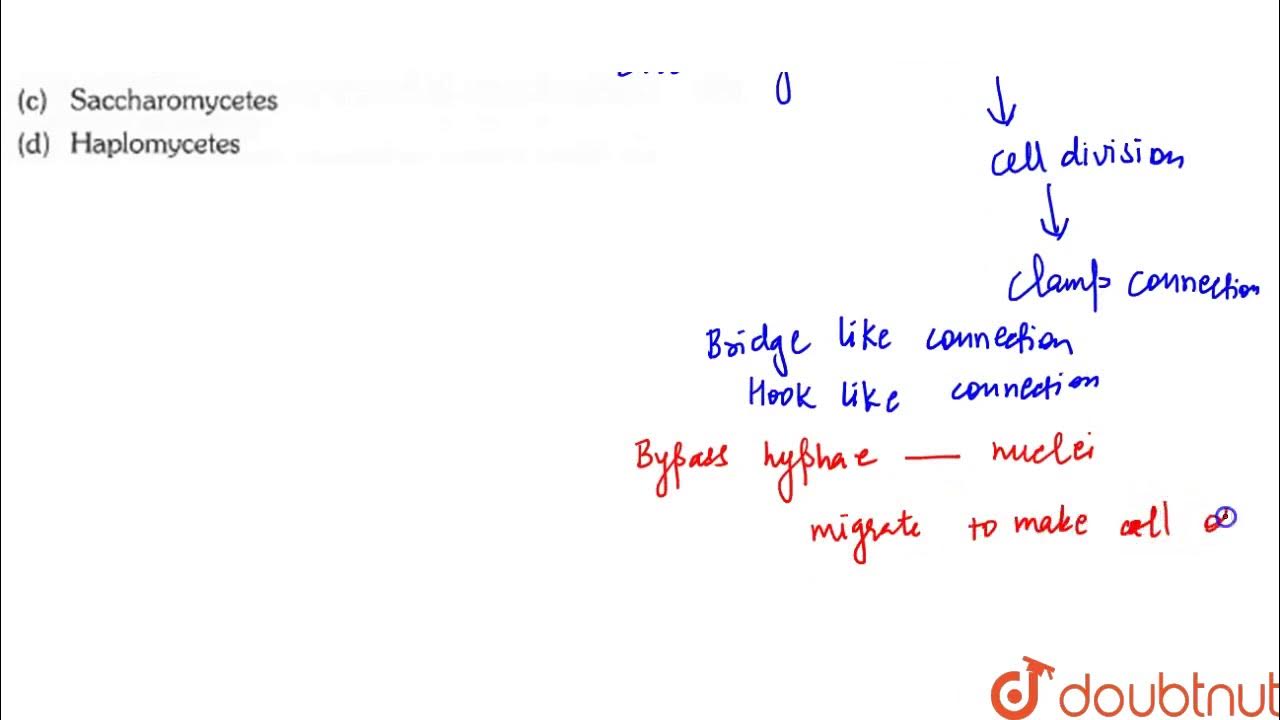 (c) Saccharomycetes
(d) Haplomycetes
cell division
Clamp connection
Bridge like connection
Hook like connection
Bypass hyphae — nuclei
migrate to make cell
doubtnut